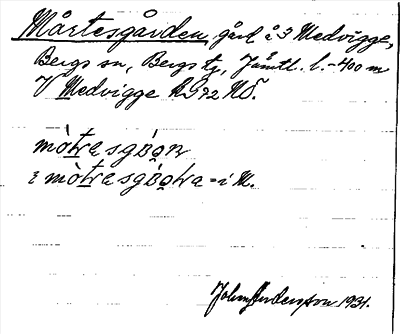 Mårtesgården, gård å 3 Medvigge,
Bergs sn, Bergs tg, Jämtl. l. - 400 m
V Medvigge RG 72 NÖ.
mòtrasgɑ́ɑn
i mòtrasgɑ́ɑtra = i M.
John Andersson 1931.